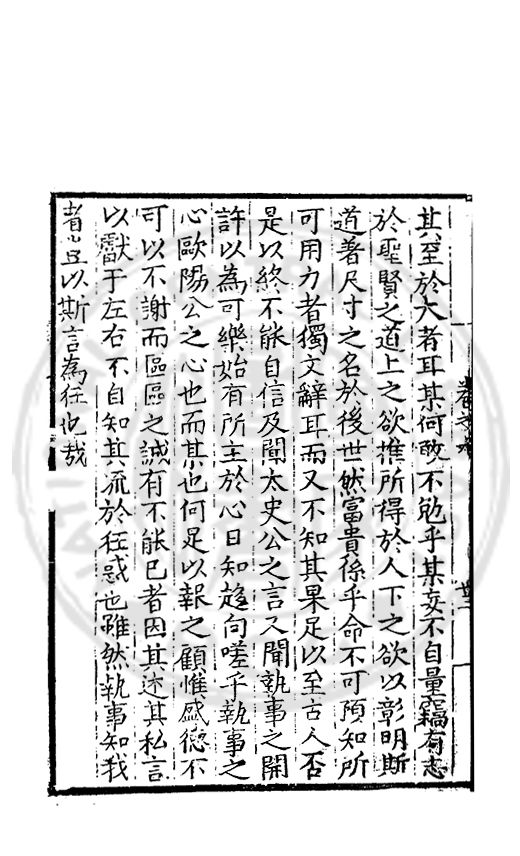 其至於大者耳某何敢不勉乎某妄不自量竊有志
於聖賢之道上之欲推所得於人下之欲以彰明斯
道著尺寸之名於後世然富貴係乎命不可預知所
可用力者獨文辭耳而又不知其果足以至古人否
是以終不能自信及聞太史公之言又聞執事之開
許以為可樂始有所主於心日知趨向嗟乎執事之
心歐陽公之心也而某也何足以報之顧惟感德不
可以不謝而區區之誠有不能已者因其述其私言
以獻于左右不自知其流於狂惑也雖然執事知我
者豈以斯言為狂也哉